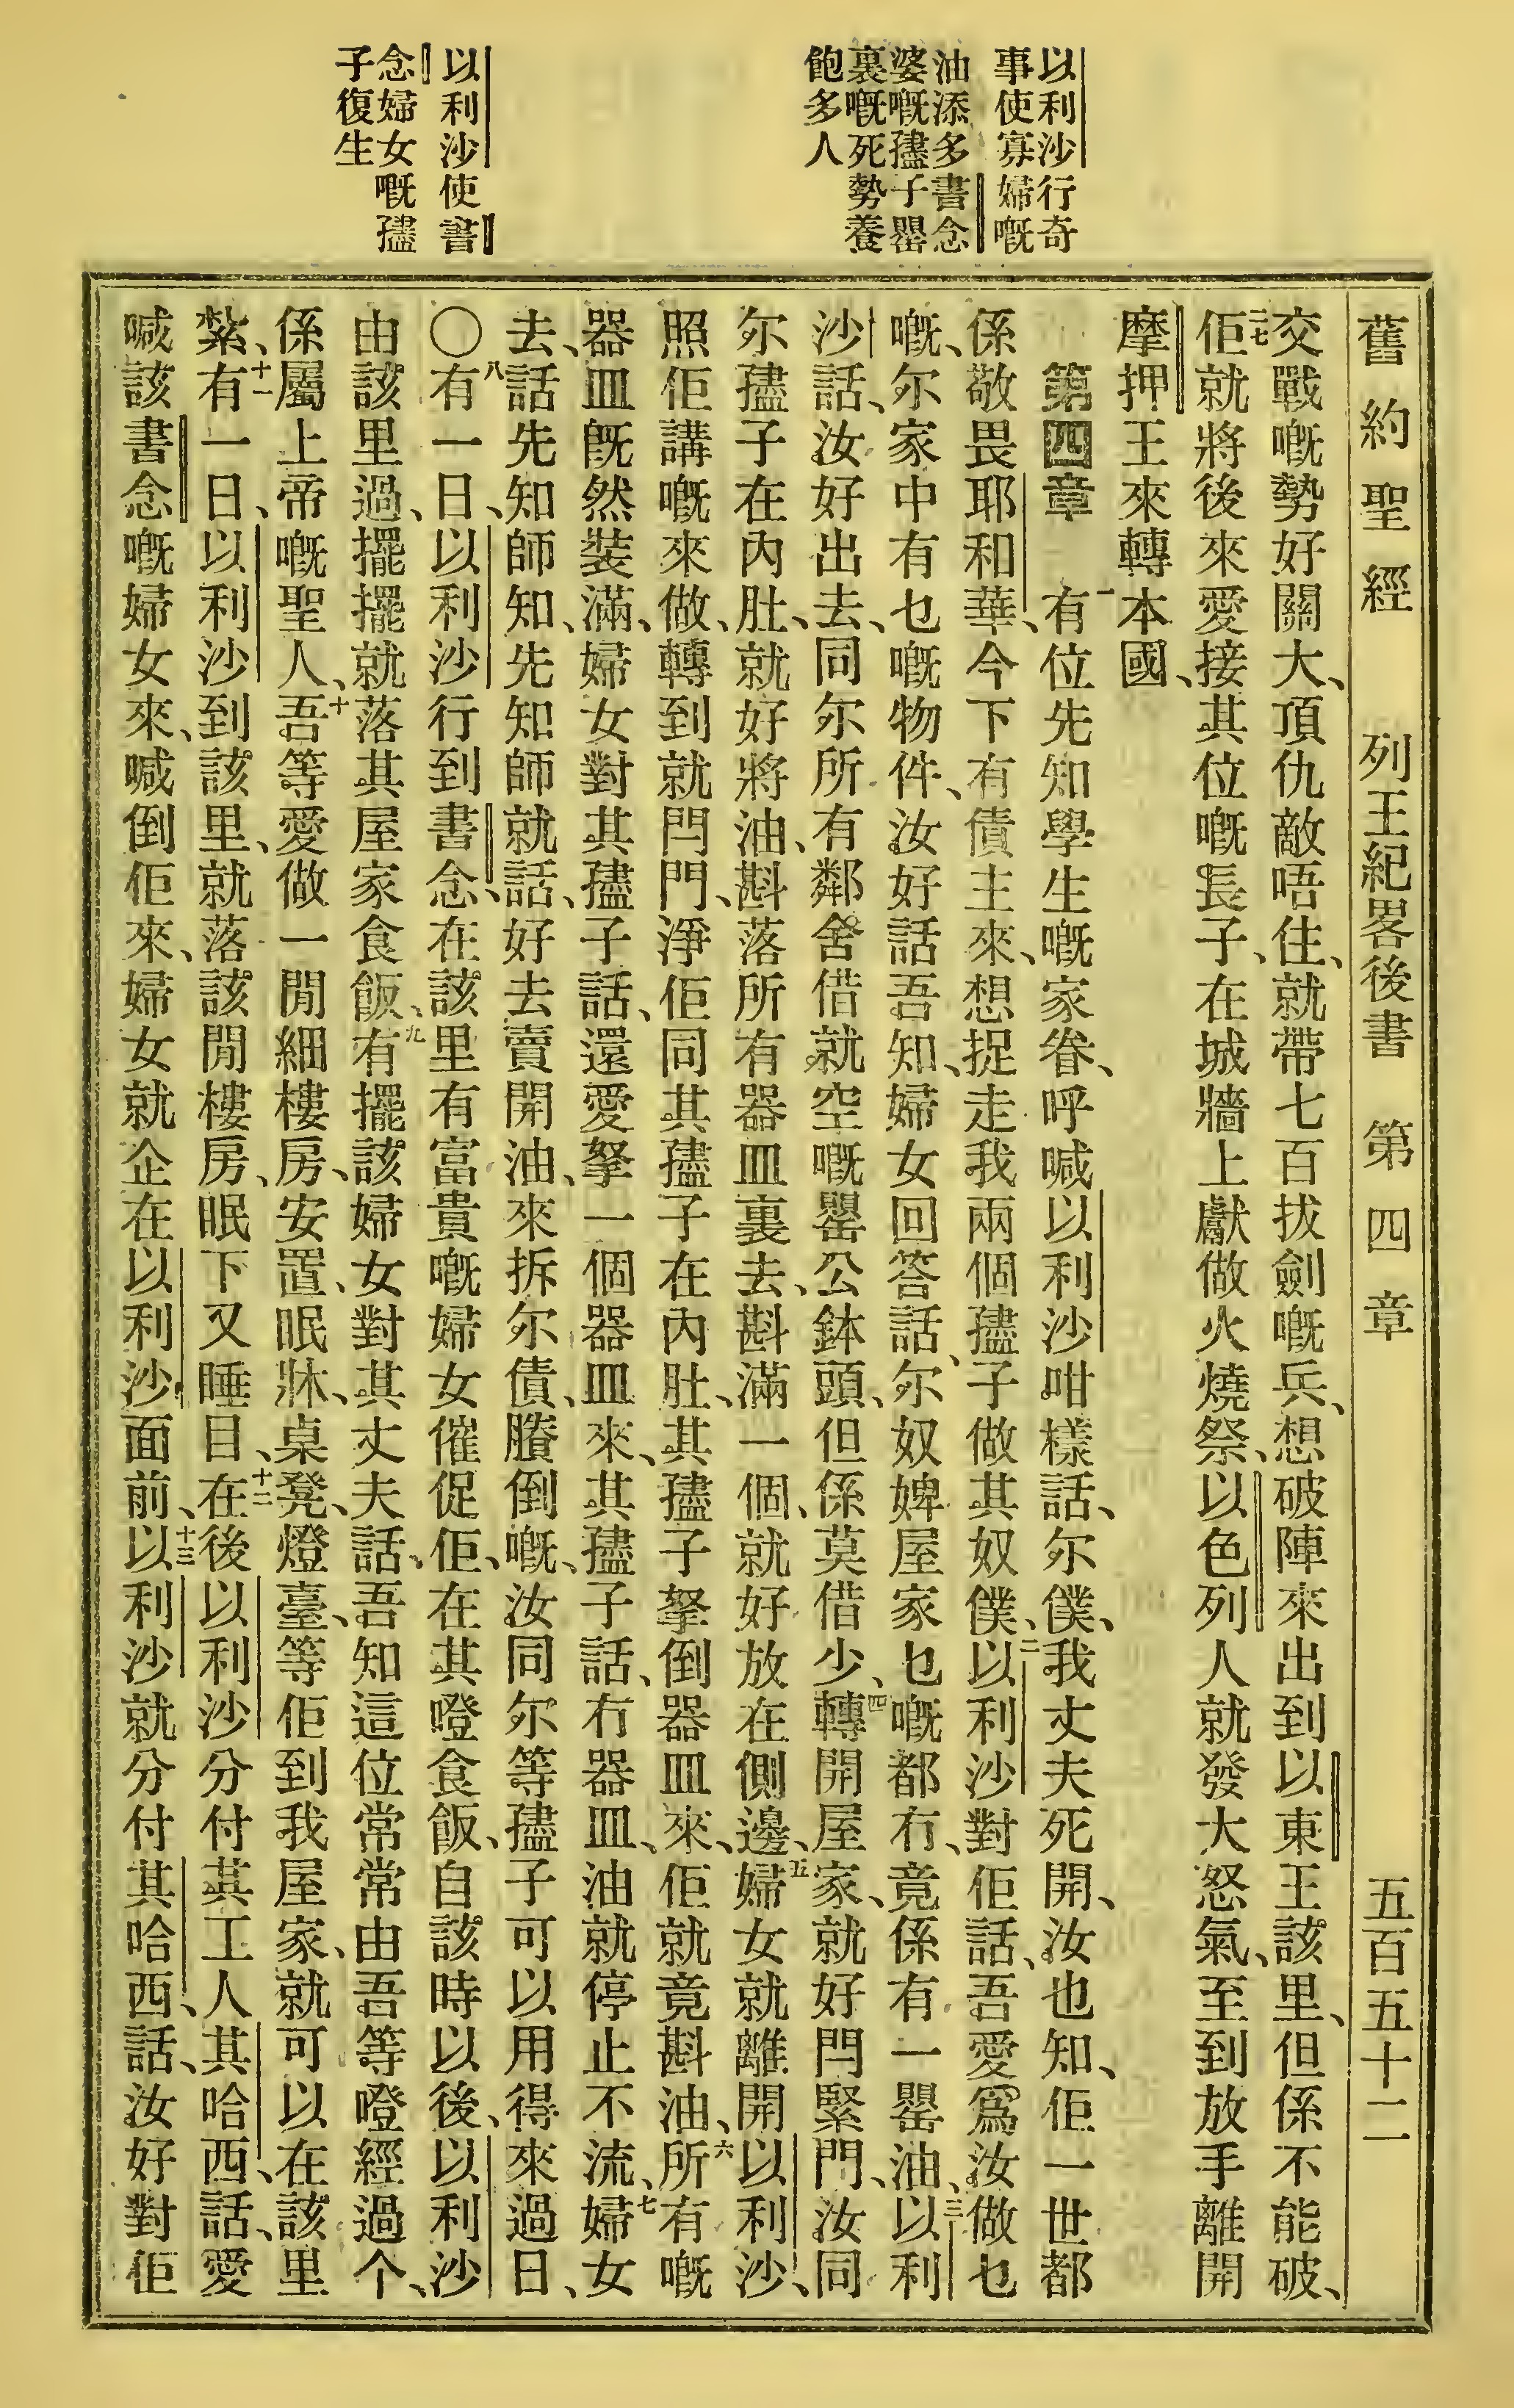 以利沙行奇
事使寡婦嘅
油添多書念
婆嘅𡥧子罌
裏嘅死勢養
飽多人
以利沙使書
念婦女嘅𡥧
子復生
舊約聖經 列王紀畧後書 第四章 五百五十二
交戰嘅勢好關大、頂仇敵唔住、就帶七百拔劍嘅兵、想破陣來出到以東王該里、但係不能破、
二七佢就將後來愛接其位嘅長子、在城牆上獻做火燒祭、以色列人就發大怒氣、至到放手離開
摩押王來轉本國、
第四章 一有位先知學生嘅家眷、呼喊以利沙咁樣話、尔僕、我丈夫死開、汝也知、佢一世都
係敬畏耶和華、今下有債主來、想捉走我兩個𡥧子做其奴僕、二以利沙對佢話、吾愛爲汝做乜
嘅、尔家中有乜嘅物件、汝好話吾知、婦女回答話、尔奴婢屋家乜嘅都冇、竟係有一罌油、三以利
沙話、汝好出去、同尔所有鄰舍借就空嘅罌公鉢頭、但係莫借少、四轉開屋家、就好閂緊門、汝同
尔𡥧子在內肚、就好將油、斟落所有器皿裏去、斟滿一個、就好放在側邊、五婦女就離開以利沙、
照佢講嘅來做、轉到就閂門、淨佢同其𡥧子在內肚、其𡥧子拏倒器皿來、佢就竟斟油、六所有嘅
器皿旣然裝滿、婦女對其𡥧子話、還愛拏一個器皿來、其𡥧子話、冇器皿、油就停止不流、七婦女
去、話先知師知、先知師就話、好去賣開油、來拆尔債、賸倒嘅、汝同尔等𡥧子可以用得來過日、
〇八有一日、以利沙行到書念、在該里有富貴嘅婦女催促佢、在其噔食飯、自該時以後、以利沙
由該里過、擺擺就落其屋家食飯、九有擺該婦女對其丈夫話、吾知這位常常由吾等噔經過个、
係屬上帝嘅聖人、十吾等愛做一閒細樓房、安置、眠牀、桌凳、燈臺、等佢到我屋家、就可以在該里
紮、十一有一日、以利沙到該里、就落該閒樓房、眠下又睡目、十二在後以利沙分付其工人其哈西、話、愛
喊該書念嘅婦女來、喊倒佢來、婦女就企在以利沙面前、十三以利沙就分付其哈西、話、汝好對佢